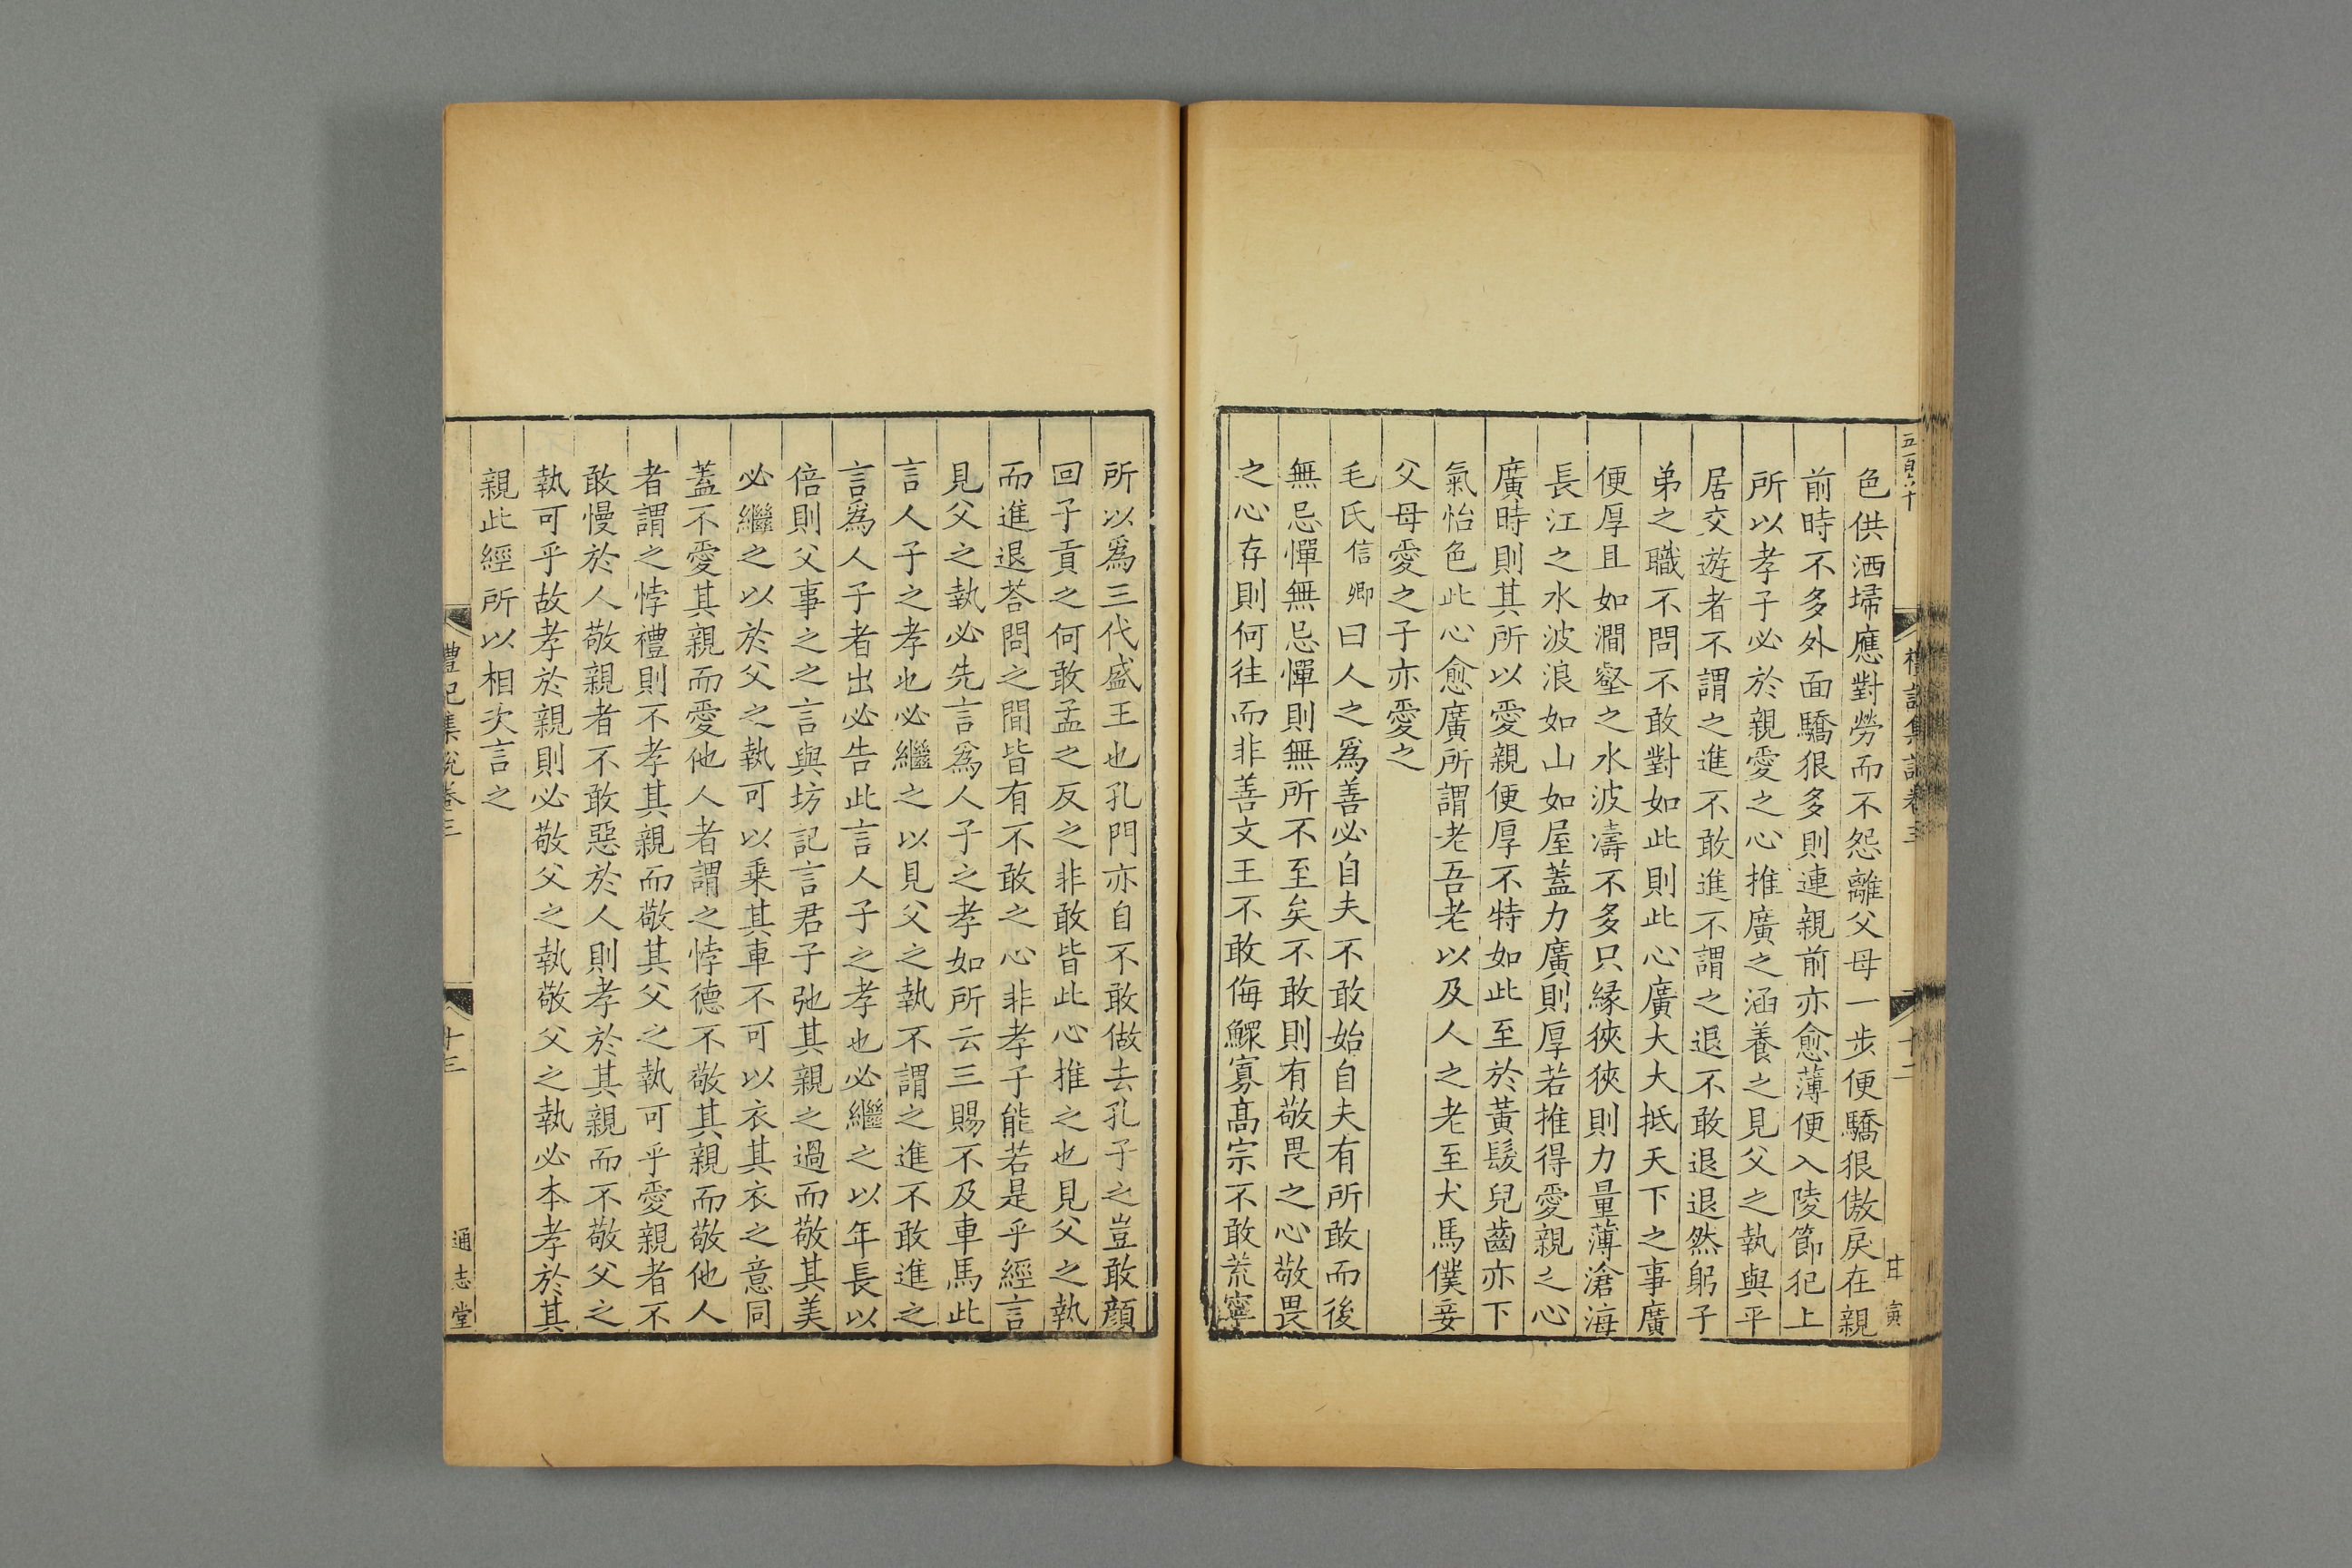 五百六十
禮記集說卷三
十二
甘寅
色供洒埽應對勞而不怨離父母一步便驕狠傲戾在親
前時不多外面驕狠多則連親前亦愈薄便入陵節犯上
所以孝子必於親愛之心推廣之涵養之見父之執與平
居交遊者不謂之進不敢進不謂之退不敢退退然躬子
弟之職不問不敢對如此則此心廣大大抵天下之事廣
便厚且如澗壑之水波濤不多只緣狹狹則力量薄滄海
長江之水波浪如山如屋蓋力廣則厚若推得愛親之心
廣時則其所以愛親便厚不特如此至於黃髮兒齒亦下
氣怡色此心愈廣所謂老吾老以及人之老至犬馬僕妾
父母愛之子亦愛之
毛氏信卿曰人之爲善必自夫不敢始自夫有所敢而後
無忌憚無忌憚則無所不至矣不敢則有敬畏之心敬畏
之心存則何往而非善文王不敢侮鰥寡髙宗不敢荒寧
所以爲三代盛王也孔門亦自不敢做去孔子之豈敢顔
回子貢之何敢孟之反之非敢皆此心推之也見父之執
而進退荅問之間皆有不敢之心非孝子能若是乎經言
見父之執必先言爲人子之孝如所云三賜不及車馬此
言人子之孝也必繼之以見父之執不謂之進不敢進之
言爲人子者出必告此言人子之孝也必繼之以年長以
倍則父事之之言與坊記言君子弛其親之過而敬其美
必繼之以於父之執可以乗其車不可以衣其衣之意同
蓋不愛其親而愛他人者謂之悖德不敬其親而敬他人
者謂之悖禮則不孝其親而敬其父之執可乎愛親者不
敢慢於人敬親者不敢惡於人則孝於其親而不敬父之
執可乎故孝於親則必敬父之執敬父之執必本孝於其
親此經所以相次言之
禮記集說卷三
十三
通志堂